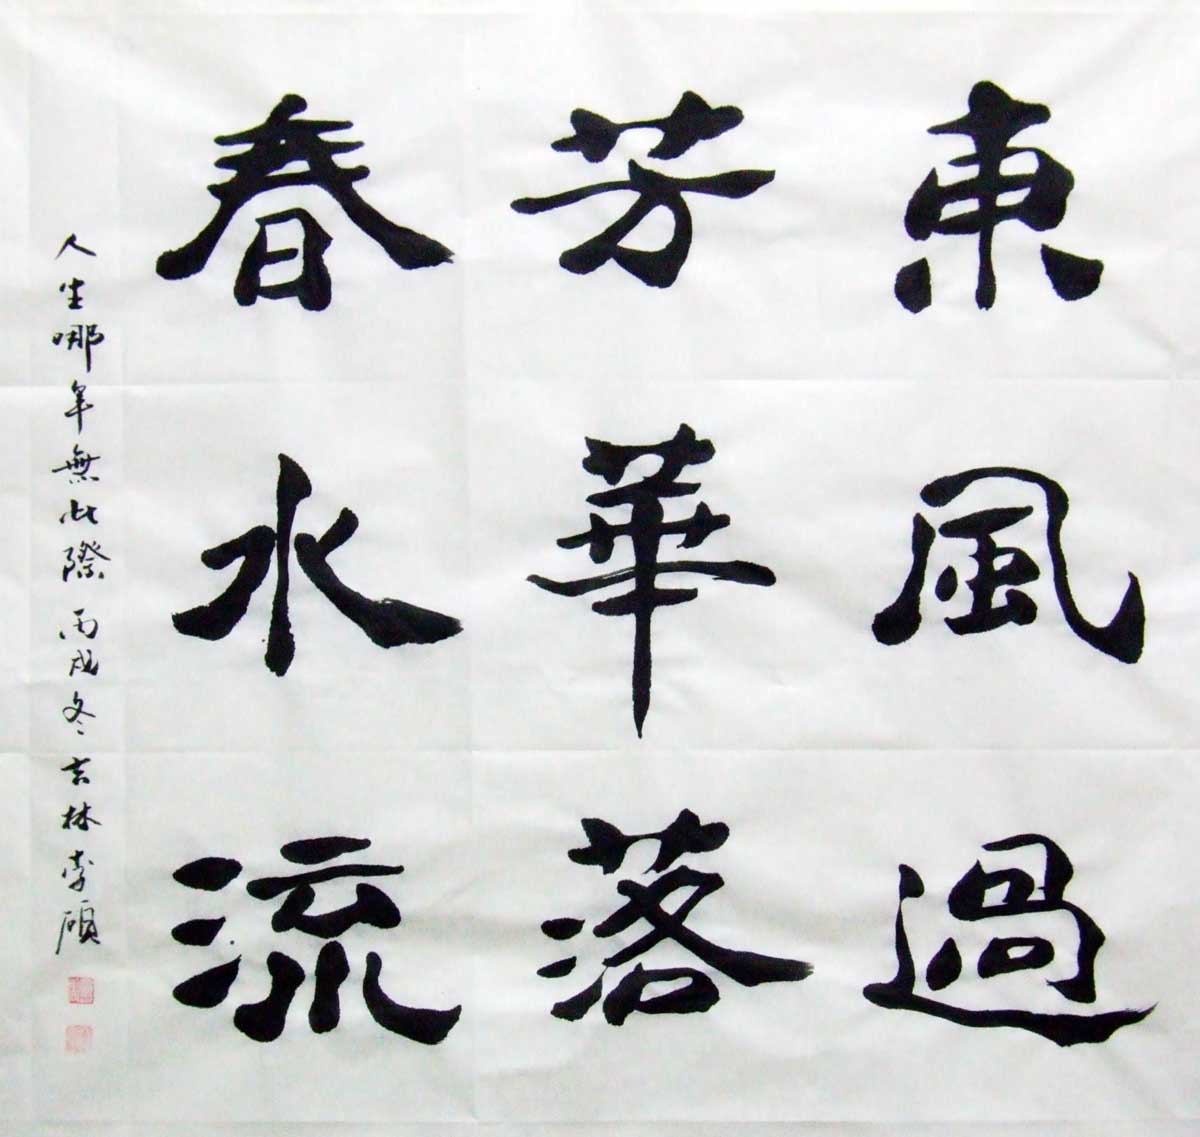 東風過
芳華落
春水流
人生哪年無此際丙戌冬吉林李碩